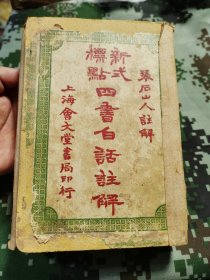 張后山人註解
新式標點
四書白話註解
上海會文堂書局印行